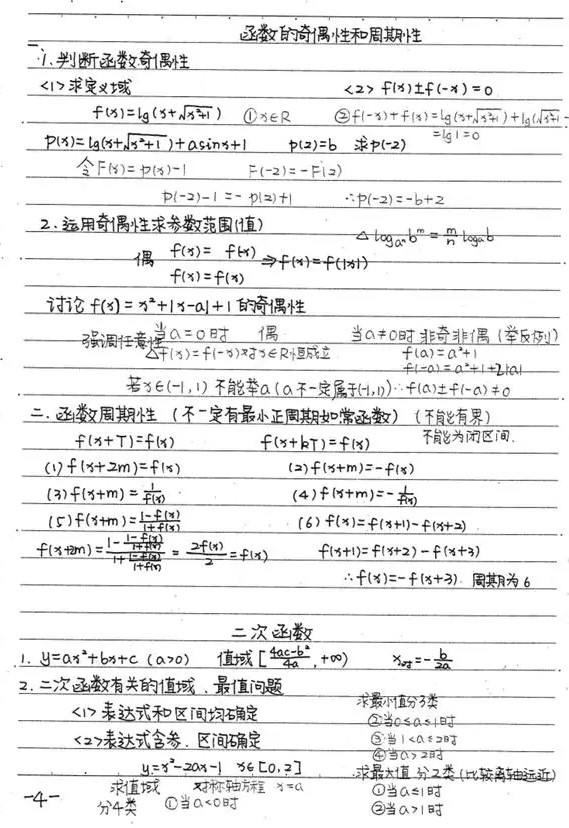 函数的奇偶性和周期性
1. 判断函数奇偶性
<1> 求定义域 <2> f(x)±f(-x)=0
f(x)=lg(x+√x²+1) ①x∈R ②f(-x)+f(x)=lg(x+√x²+1)+lg(√x²+1-
=lg1=0
p(x)=lg(x+√x²+1)+asinx+1 p(2)=b 求p(-2)
令F(x)=p(x)-1 F(-2)=-F(2)
p(-2)-1=-p(2)+1 ∴p(-2)=-b+2
2. 运用奇偶性求参数范围(值) △log_{aⁿ}b^m=m/n log_a b
偶 f(x)=f(-x) ⇒f(x)=f(|x|)
f(x)=f(x)
讨论 f(x)=x²+|x-a|+1 的奇偶性
强调任意性 当a=0时 偶 当a≠0时 非奇非偶 (举反例)
△f(x)=f(-x)对x∈R恒成立 f(a)=a²+1
f(-a)=a²+1+2|a|
若x∈(-1,1) 不能举a (a不一定属于(-1,1)) ∴f(a)±f(-a)≠0
二. 函数周期性 (不一定有最小正周期如常函数) (不能有界)
f(x+T)=f(x) f(x+kT)=f(x) 不能为闭区间.
(1) f(x+2m)=f(x) (2) f(x+m)=-f(x)
(3) f(x+m)=1/f(x) (4) f(x+m)=-1/f(x)
(5) f(x+m)=(1-f(x))/(1+f(x)) (6) f(x)=f(x+1)-f(x+2)
f(x+2m)=(1-(1-f(x))/(1+f(x)))/(1+(1-f(x))/(1+f(x)))=2f(x)/2=f(x) f(x+1)=f(x+2)-f(x+3)
∴f(x)=-f(x+3) 周期为6
二次函数
1. y=ax²+bx+c (a>0) 值域[(4ac-b²)/4a,+∞) x对=-b/2a
2. 二次函数有关的值域、最值问题
<1> 表达式和区间均确定 求最小值分3类
②当0≤a≤1时
<2> 表达式含参、区间确定 ③当1<a≤2时
④当a>2时
y=x²-2ax-1 x∈[0,2] 求最大值 分2类(比较离轴远近)
求值域 对称轴方程 x=a ①当a≤1时
-4- 分4类 ①当a<0时 ②当a>1时